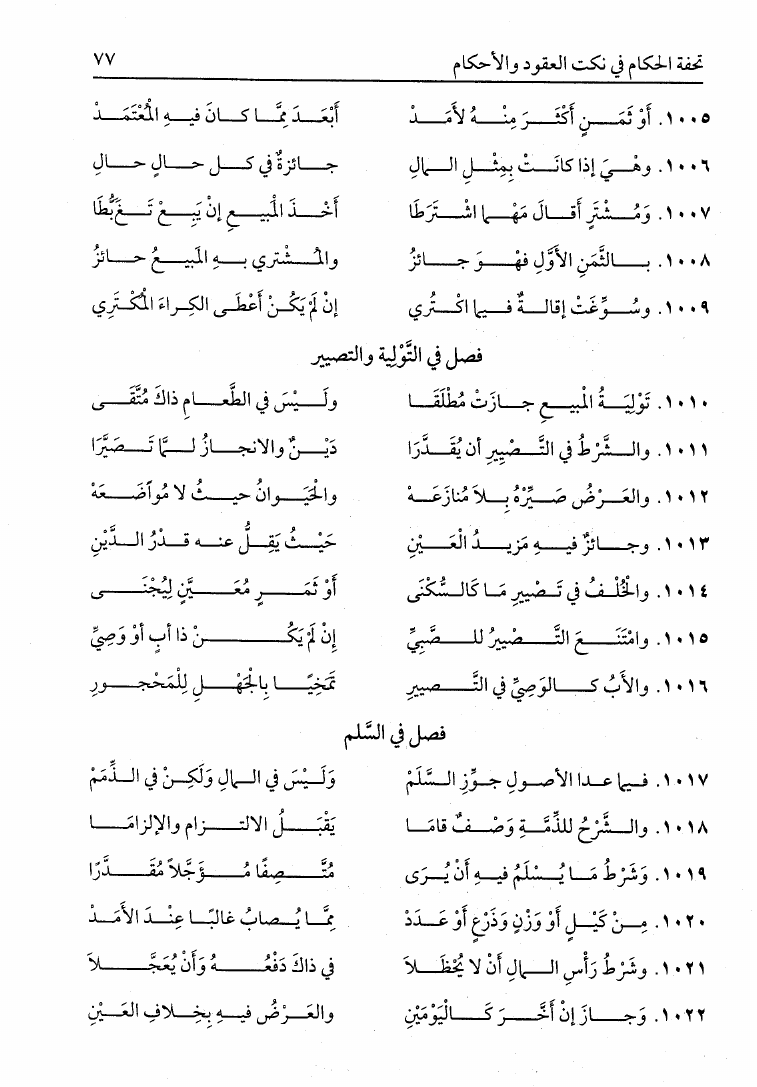 تحفة الحكام في نكت العقود والأحكام ٧٧
١٠٠٥. أَوْ ثَمَـنٍ أَكْثَـرَ مِنْـهُ لأَمَـدْ أَبْعَـدَ مِمَّا كـانَ فيـهِ المُعْتَمَـدْ
١٠٠٦. وهْـيَ إذا كانَـتْ بِمِثْـلِ المـالِ جـائزةٌ في كـل حـالٍ حـالِ
١٠٠٧. وَمُـشْتَرٍ أقـالَ مَهْـما اشْـتَرَطا أخْـذَ المَبيـعِ إنْ يَبِـعْ تَـغَبُّطَا
١٠٠٨. بـالثَّمَنِ الأوَّلِ فهْـوَ جـائزُ والمُـشْتري بـهِ المَبيـعُ حـائزُ
١٠٠٩. وسُـوِّغَتْ إقالـةٌ فـيما اكْـتُري إنْ لَمْ يَكُـنْ أعْطَـى الكِـراءَ المُكْتَرِي
فصل في التَّوْلِية والتصيير
١٠١٠. تَوْلِيَـةُ المَبيـعِ جـازَتْ مُطْلَقَـا ولَـيْسَ في الطَّعـامِ ذاكَ مُتَّقَـى
١٠١١. والـشَّرْطُ في التَّـصْيِيرِ أن يُقَـدَّرَا دَيْـنٌ والانجـازُ لـمَّا تَـصَيَّرَا
١٠١٢. والعَـرْضُ صَـيِّرْهُ بِـلاَ مُنازَعَـهْ والحَيَـوانُ حيـثُ لا مُواضَعَـهْ
١٠١٣. وجـائزٌ فيـهِ مَزيـدُ العَـيْنِ حَيْـثُ يَقِـلُّ عنـه قـدْرُ الـدَّيْنِ
١٠١٤. والخُلْـفُ في تَـصْيِيرِ مَـا كَالـسُّكْنَى أوْ ثَمَـرٍ مُعَـيَّنٍ لِيُجْنَـى
١٠١٥. وامْتَنَـعَ التَّـصْيِيرُ للـصَّبِيِّ إنْ لَمْ يَكُـنْ ذا أبٍ أوْ وَصِيِّ
١٠١٦. والأبُ كـالوَصِيِّ في التَّـصيير تَمَخِّيًـا بِالجَهْـلِ لِلْمَحْجـورِ
فصل في السَّلم
١٠١٧. فـيما عـدا الأصـولِ جـوِّزِ الـسَّلَمْ وَلَـيْسَ في المـالِ وَلَكِـنْ في الـذِّمَمْ
١٠١٨. والـشَّرْحُ للذِّمَّـةِ وَصْـفٌ قامَـا يَقْبَـلُ الالتـزام والإلزامَـا
١٠١٩. وَشَرْطُ مَـا يُـسْلَمُ فيـهِ أنْ يُـرَى مُتَّـصِفًا مُـؤَجَّلاً مُقَـدَّرًا
١٠٢٠. مِـنْ كَيْـلٍ أوْ وَزْنٍ وَذَرْعٍ أوْ عَـدَدْ مِمَّا يُـصابُ غالبًـا عِنْـدَ الأمَـدْ
١٠٢١. وشَرْطُ رَأْسِ المـالِ أنْ لا يُحْظَـلاَ في ذاكَ دَفْعُـهُ وَأنْ يُعَجَّـلاَ
١٠٢٢. وَجـازَ إنْ أخَّـرَ كَـالْيَوْمَيْنِ والعَـرْضُ فيـهِ بِخِـلافِ العَـيْنِ